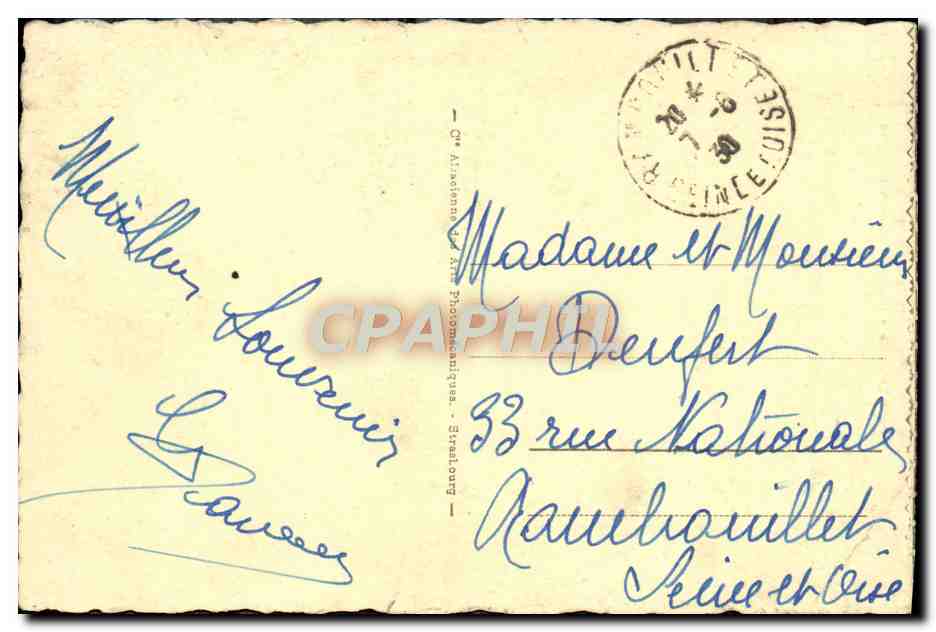 Meilleur
Souvenir
Cie Alsacienne des Arts Photomécaniques. - Strasbourg
RAMBOUILLET
SEINE ET OISE
20 - 6
7 30
Madame et Monsieur
Denfert
33 rue Nationale
Rambouillet
Seine et Oise
CPAPHIL